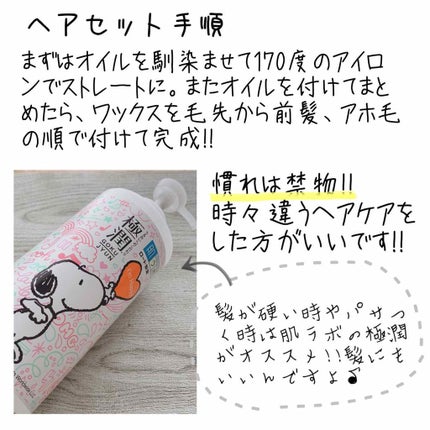 ヘアセット手順
まずはオイルを馴染ませて170度のアイロ
ンでストレートに。またオイルを付けてまと
めたら、ワックスを毛先から前髪、アホ毛
の順で付けて完成!!
慣れは禁物!!
時々違うヘアケアを
した方がいいです!!
髪が硬い時やパサつ
く時は肌ラボの極潤
がオススメ!!髪にも
いいんですよ♪
肌研
極潤
GOKU
JYUN